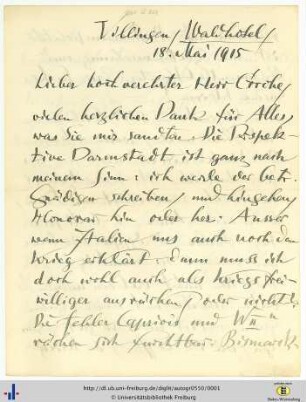 Villingen / Waldhotel /
18. Mai 1915
Lieber hochverehrter Herr
vielen herzlichen Dank für Alles,
was Sie mir sandten. Die Perspek-
tive Darmstadt ist ganz nach
meinem Sinn: ich werde der betr.
Gnädigen schreiben und hingehen,
Honorar hin oder her. Ausser
wenn Italien uns auch noch den
Krieg erklärt: dann muss ich
doch wohl auch als Kriegsfrei-
williger ausrücken / oder nicht?
Die Fehler Caprivis und W II
rächen sich furchtbar. Bismarck
http://dl.ub.uni-freiburg.de/diglit/autogr0550/0001
© Universitätsbibliothek Freiburg
UNI FREIBURG
Baden-Württemberg